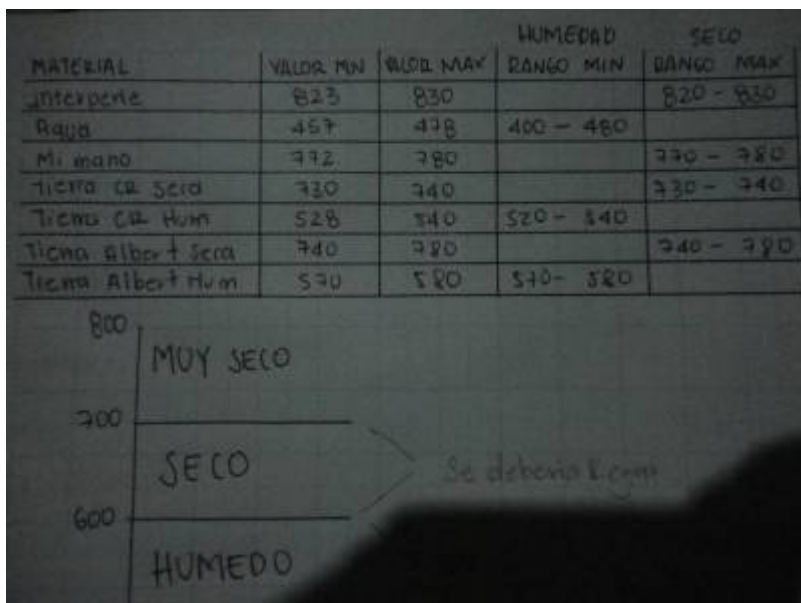 HUMEDAD SECO
MATERIAL VALOR MIN VALOR MAX RANGO MIN RANGO MAX
interperie 823 830 820 - 830
Agua 457 478 400 - 480
Mi mano 772 780 770 - 780
Tierra CR Seca 730 740 730 - 740
Tierra CR Hum 528 540 520 - 540
Tierra Albert Seca 740 780 740 - 780
Tierra Albert Hum 570 580 570 - 580
800
MUY SECO
700
SECO
Se debería
600
HUMEDO